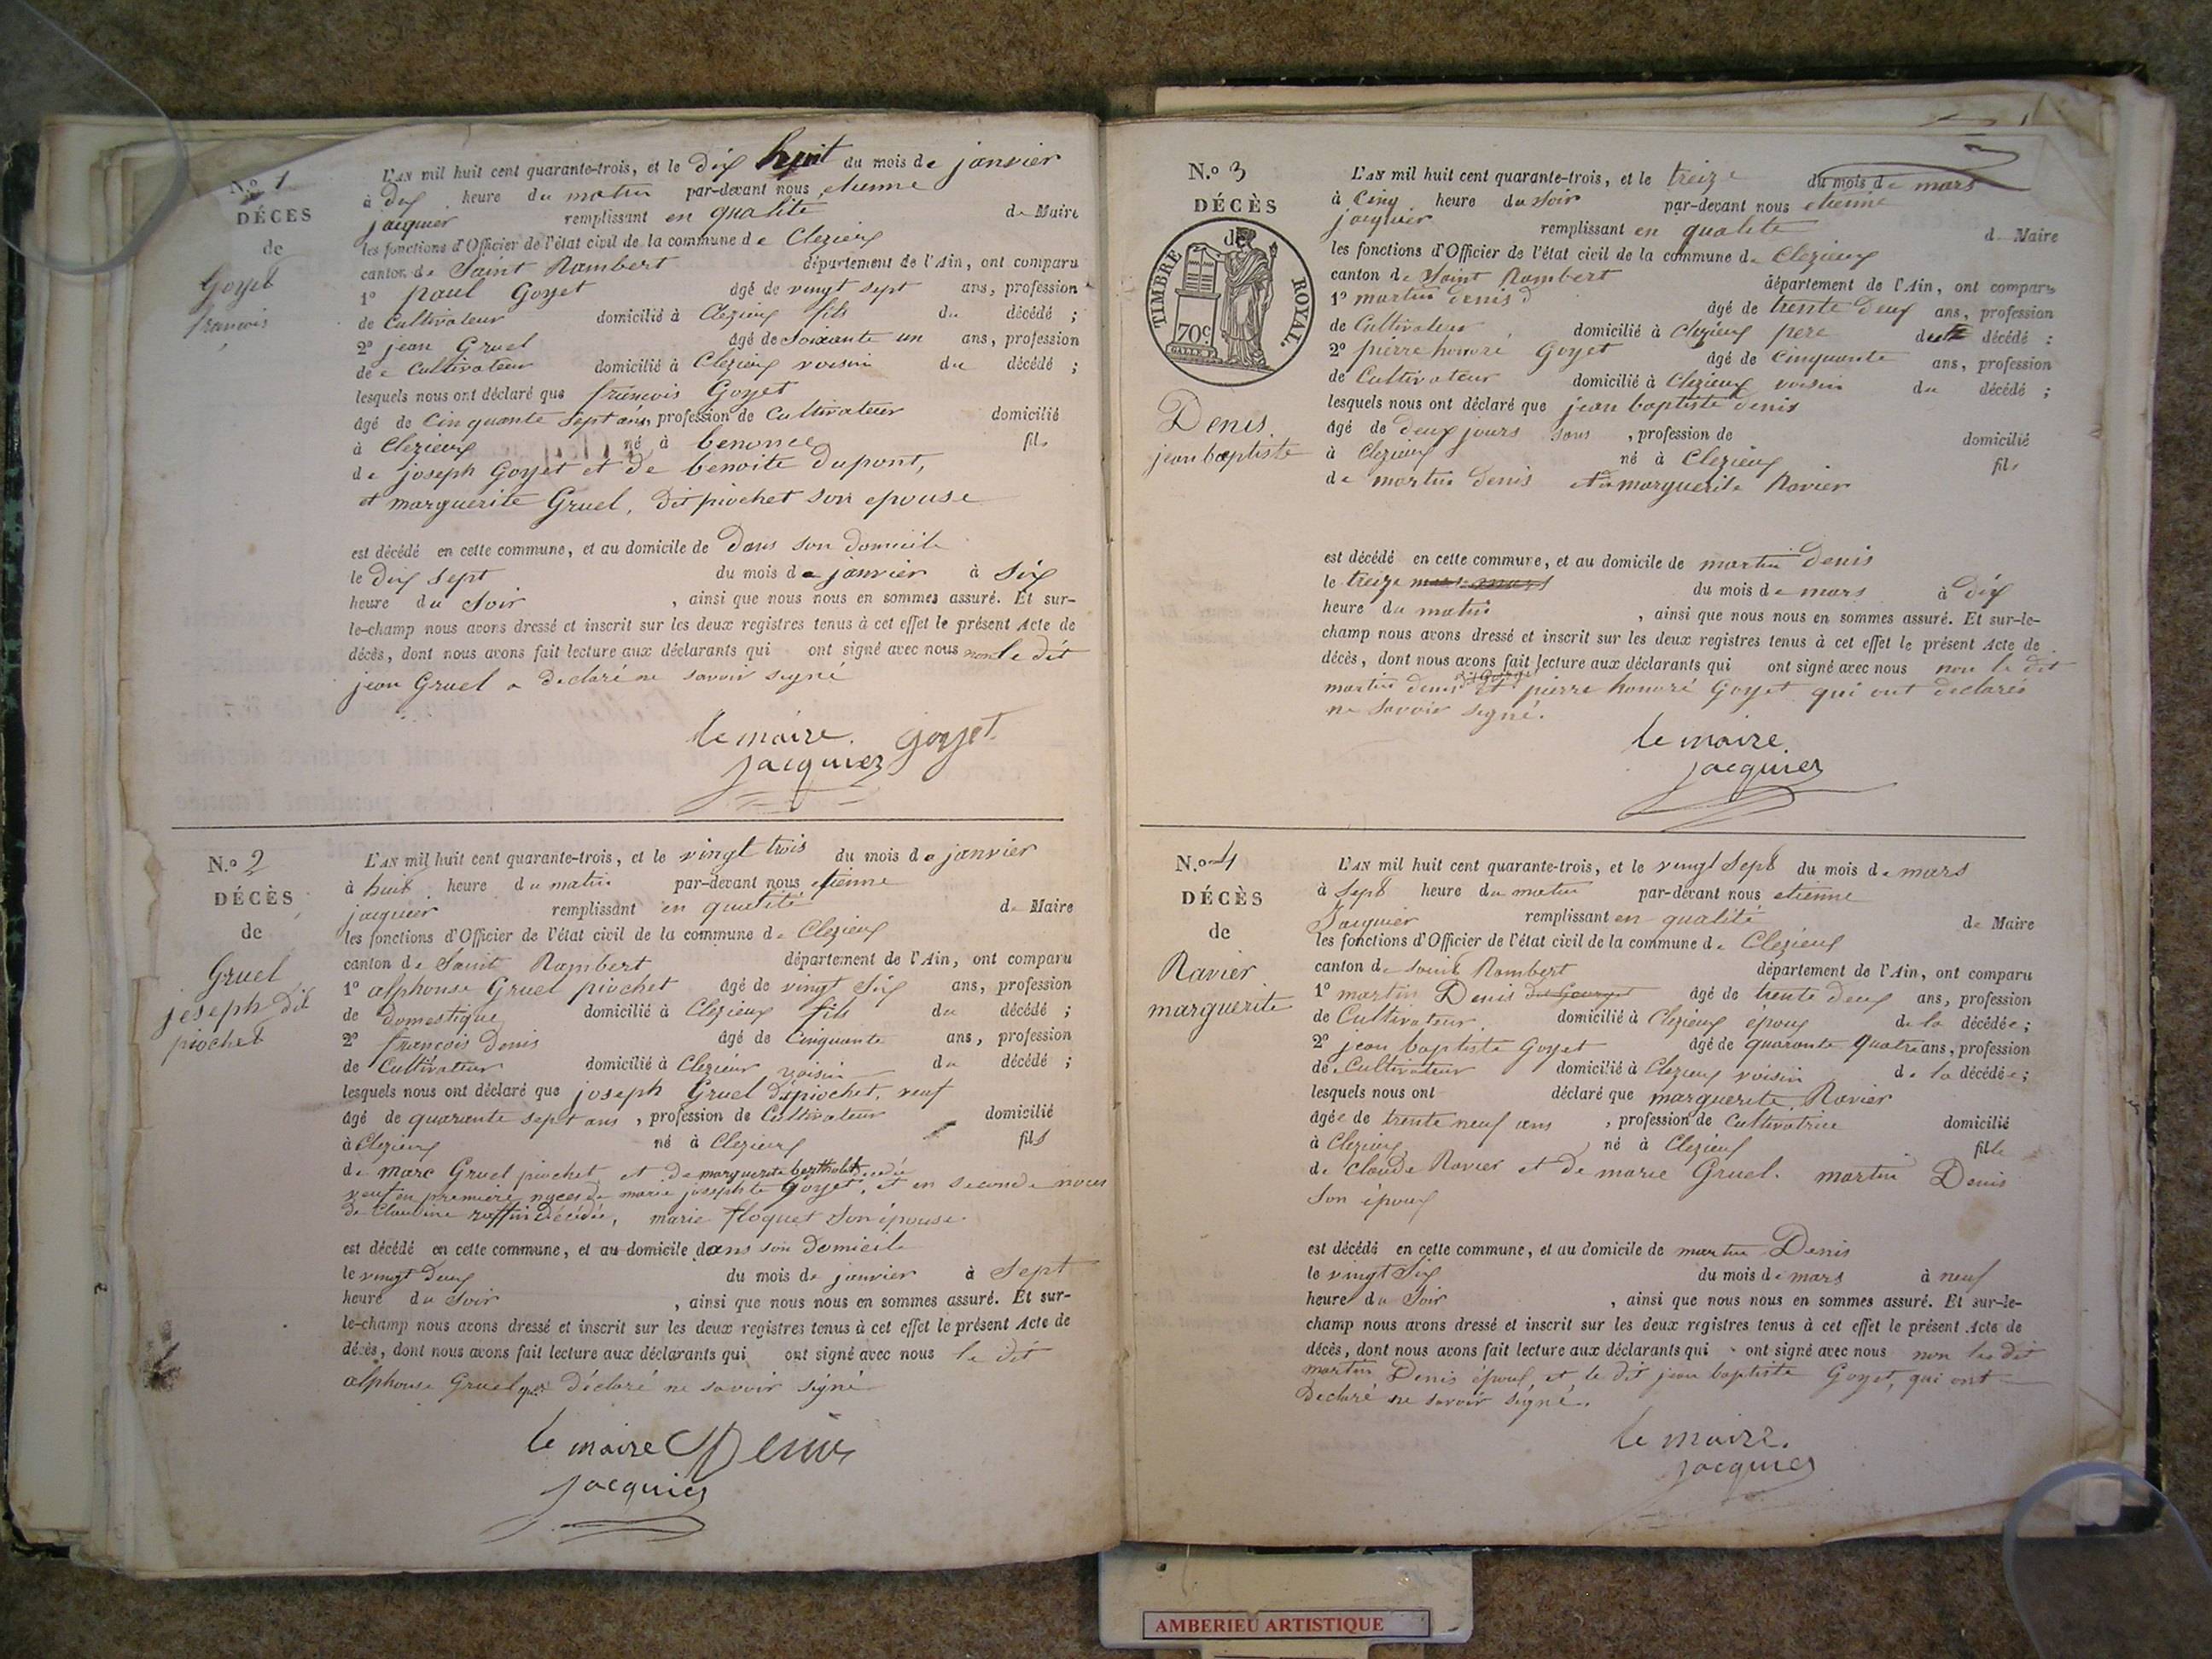 N.º 1
DÉCES
de
Goyet
francois
L'AN mil huit cent quarante-trois, et le dix huit du mois de janvier
à dix heure du matin par-devant nous etienne
jacquier remplissant en qualité de Maire
les fonctions d'Officier de l'état civil de la commune de Clezieux
canton de Saint Rambert département de l'Ain, ont comparu
1º paul Goyet âgé de vingt sept ans, profession
de Cultivateur domicilié à Clezieux fils du décédé ;
2º jean Gruel âgé de Soixante un ans, profession
de Cultivateur domicilié à Clezieux voisin du décédé ;
lesquels nous ont déclaré que francois Goyet
âgé de Cinquante Sept ans, profession de Cultivateur domicilié
à Clezieux né à benonce fils
de joseph Goyet et de benoite dupont,
et marguerite Gruel, dit piochet son epouse
est décédé en cette commune, et au domicile de dans son domicile
le dix sept du mois de janvier à Six
heure du Soir , ainsi que nous nous en sommes assuré. Et sur-
le-champ nous avons dressé et inscrit sur les deux registres tenus à cet effet le présent Acte de
décès, dont nous avons fait lecture aux déclarants qui ont signé avec nous non le dit
jean Gruel a declaré ne savoir signé
le maire. Goyet
jacquier
N.º 2
DÉCÈS
de
Gruel
joseph dit
piochet
L'AN mil huit cent quarante-trois, et le vingt trois du mois de janvier
à huit heure du matin par-devant nous etienne
jacquier remplissant en qualité de Maire
les fonctions d'Officier de l'état civil de la commune de Clezieux
canton de Saint Rambert département de l'Ain, ont comparu
1º alphonse Gruel piochet âgé de vingt Six ans, profession
de domestique domicilié à Clezieux fils du décédé ;
2º francois denis âgé de Cinquante ans, profession
de Cultivateur domicilié à Clezieux voisin du décédé ;
lesquels nous ont déclaré que joseph Gruel dit piochet, veuf
âgé de quarante sept ans , profession de Cultivateur domicilié
à Clezieux né à Clezieux fils
de marc Gruel piochet et de marguerite
veuf en premiere nyces de marie josephte Goyet, et en seconde nous
de Claudine décédée, marie floquet Son épouse
est décédé en cette commune, et au domicile dans son domicile
le vingt deux du mois de janvier à Sept
heure du Soir , ainsi que nous nous en sommes assuré. Et sur-
le-champ nous avons dressé et inscrit sur les deux registres tenus à cet effet le présent Acte de
décès, dont nous avons fait lecture aux déclarants qui ont signé avec nous le dit
alphonse Gruel qui déclaré ne savoir signé
le maire Denis
jacquier
N.º 3
DÉCÈS
de
TIMBRE ROYAL.
70c.
Denis
jean baptiste
L'AN mil huit cent quarante-trois, et le treize du mois de mars
à Cinq heure du Soir par-devant nous etienne
jacquier remplissant en qualité de Maire
les fonctions d'Officier de l'état civil de la commune de Clezieux
canton de Saint Rambert département de l'Ain, ont comparu
1º martin denis âgé de trente deux ans, profession
de Cultivateur domicilié à Clezieux pere du décédé ;
2º pierre honoré Goyet âgé de Cinquante ans, profession
de Cultivateur domicilié à Clezieux voisin du décédé ;
lesquels nous ont déclaré que jean baptiste denis
âgé de deux jours sans , profession de domicilié
à Clezieux né à Clezieux fils
de martin denis et de marguerite Ravier
est décédé en cette commune, et au domicile de martin denis
le treize du mois de mars à dix
heure du matin , ainsi que nous nous en sommes assuré. Et sur-le-
champ nous avons dressé et inscrit sur les deux registres tenus à cet effet le présent Acte de
décès, dont nous avons fait lecture aux déclarants qui ont signé avec nous non le dit
martin denis et pierre honoré Goyet qui ont declarés
ne savoir signé.
le maire.
jacquier
N.º 4
DÉCÈS
de
Ravier
marguerite
L'AN mil huit cent quarante-trois, et le vingt Sept du mois de mars
à Sept heure du matin par-devant nous etienne
Jacquier remplissant en qualité de Maire
les fonctions d'Officier de l'état civil de la commune de Clezieux
canton de Saint Rambert département de l'Ain, ont comparu
1º martin Denis dit Georget âgé de trente deux ans, profession
de Cultivateur domicilié à Clezieux epoux de la décédée ;
2º jean baptiste Goyet âgé de quarante quatre ans, profession
de Cultivateur domicilié à Clezieux voisin de la décédée ;
lesquels nous ont déclaré que marguerite Ravier
âgée de trente neuf ans , profession de Cultivatrice domicilié
à Clezieux né à Clezieux fille
de claude Ravier et de marie Gruel. martin Denis
Son époux
est décédé en cette commune, et au domicile de martin Denis
le vingt Six du mois de mars à neuf
heure du Soir , ainsi que nous nous en sommes assuré. Et sur-le-
champ nous avons dressé et inscrit sur les deux registres tenus à cet effet le présent Acte de
décès, dont nous avons fait lecture aux déclarants qui ont signé avec nous non le dit
martin Denis époux et le dit jean baptiste Goyet, qui ont
Declaré ne savoir signé.
le maire.
jacquier
AMBERIEU ARTISTIQUE